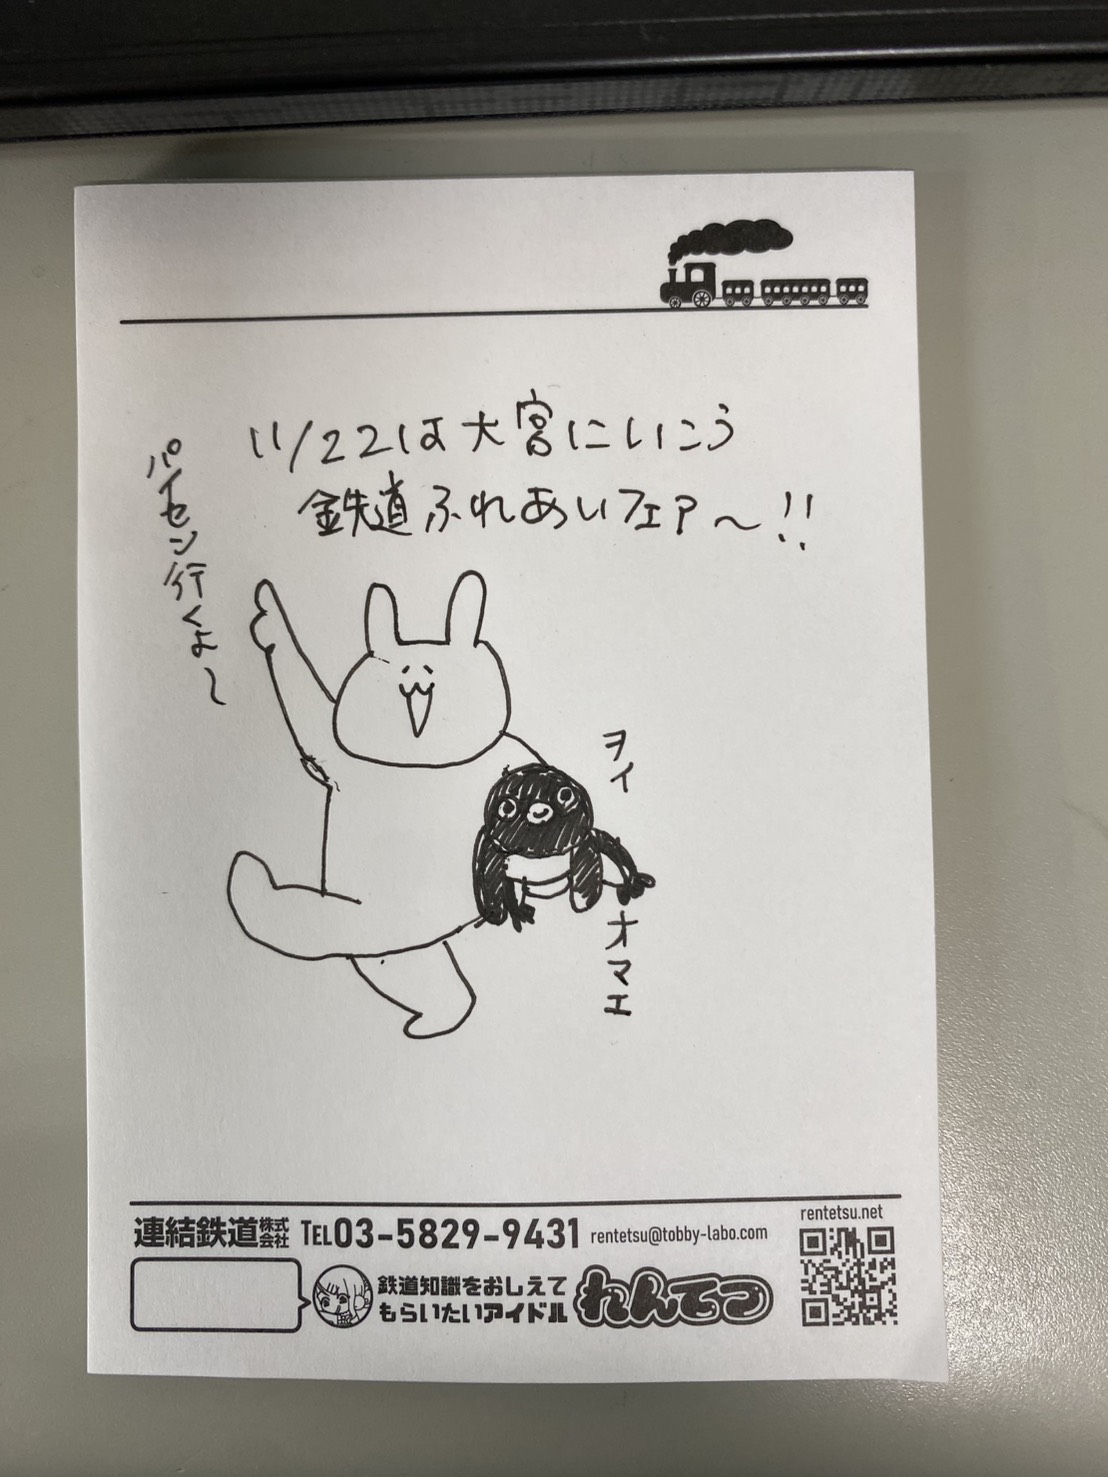 11/22は大宮にいこう
鉄道ふれあいフェア〜!!
パイセン行くよ〜
ヲイ
オマエ
連結鉄道株式会社 TEL03-5829-9431 rentetsu@tobby-labo.com
rentetsu.net
鉄道知識をおしえて
もらいたいアイドル
れんてつ